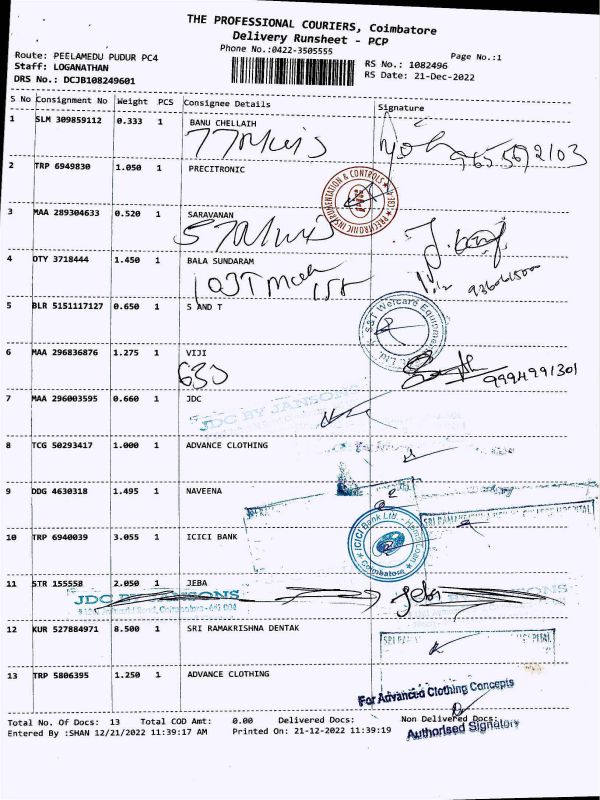 THE PROFESSIONAL COURIERS, Coimbatore
Delivery Runsheet - PCP
Phone No.:0422-3505555
Page No.:1
Route: PEELAMEDU PUDUR PC4
RS No.: 1082496
Staff: LOGANATHAN
RS Date: 21-Dec-2022
DRS No.: DCJB108249601
S No Consignment No Weight PCS Consignee Details Signature
1 SLM 309859112 0.333 1 BANU CHELLAIH
9655692103
2 TRP 6949830 1.050 1 PRECITRONIC
PRECITRONIC INSTRUMENTATION & CONTROLS
3 MAA 289304633 0.520 1 SARAVANAN
4 OTY 3718444 1.450 1 BALA SUNDARAM
5 BLR 5151117127 0.650 1 S AND T
S&T Welcare Equipments
6 MAA 296836876 1.275 1 VIJI
633
9994991301
7 MAA 296003595 0.660 1 JDC
JDC BY JANSONS
8 TCG 50293417 1.000 1 ADVANCE CLOTHING
9 DDG 4630318 1.495 1 NAVEENA
10 TRP 6940039 3.055 1 ICICI BANK
ICICI Bank Ltd.
Coimbatore
11 STR 155558 2.050 1 JEBA
JDC BY JANSONS
Jeba
12 KUR 527884971 8.500 1 SRI RAMAKRISHNA DENTAK
13 TRP 5806395 1.250 1 ADVANCE CLOTHING
For Advanced Clothing Concepts
Total No. Of Docs: 13 Total COD Amt: 0.00 Delivered Docs: Non Delivered Docs:
Entered By :SHAN 12/21/2022 11:39:17 AM Printed On: 21-12-2022 11:39:19
Authorised Signatory